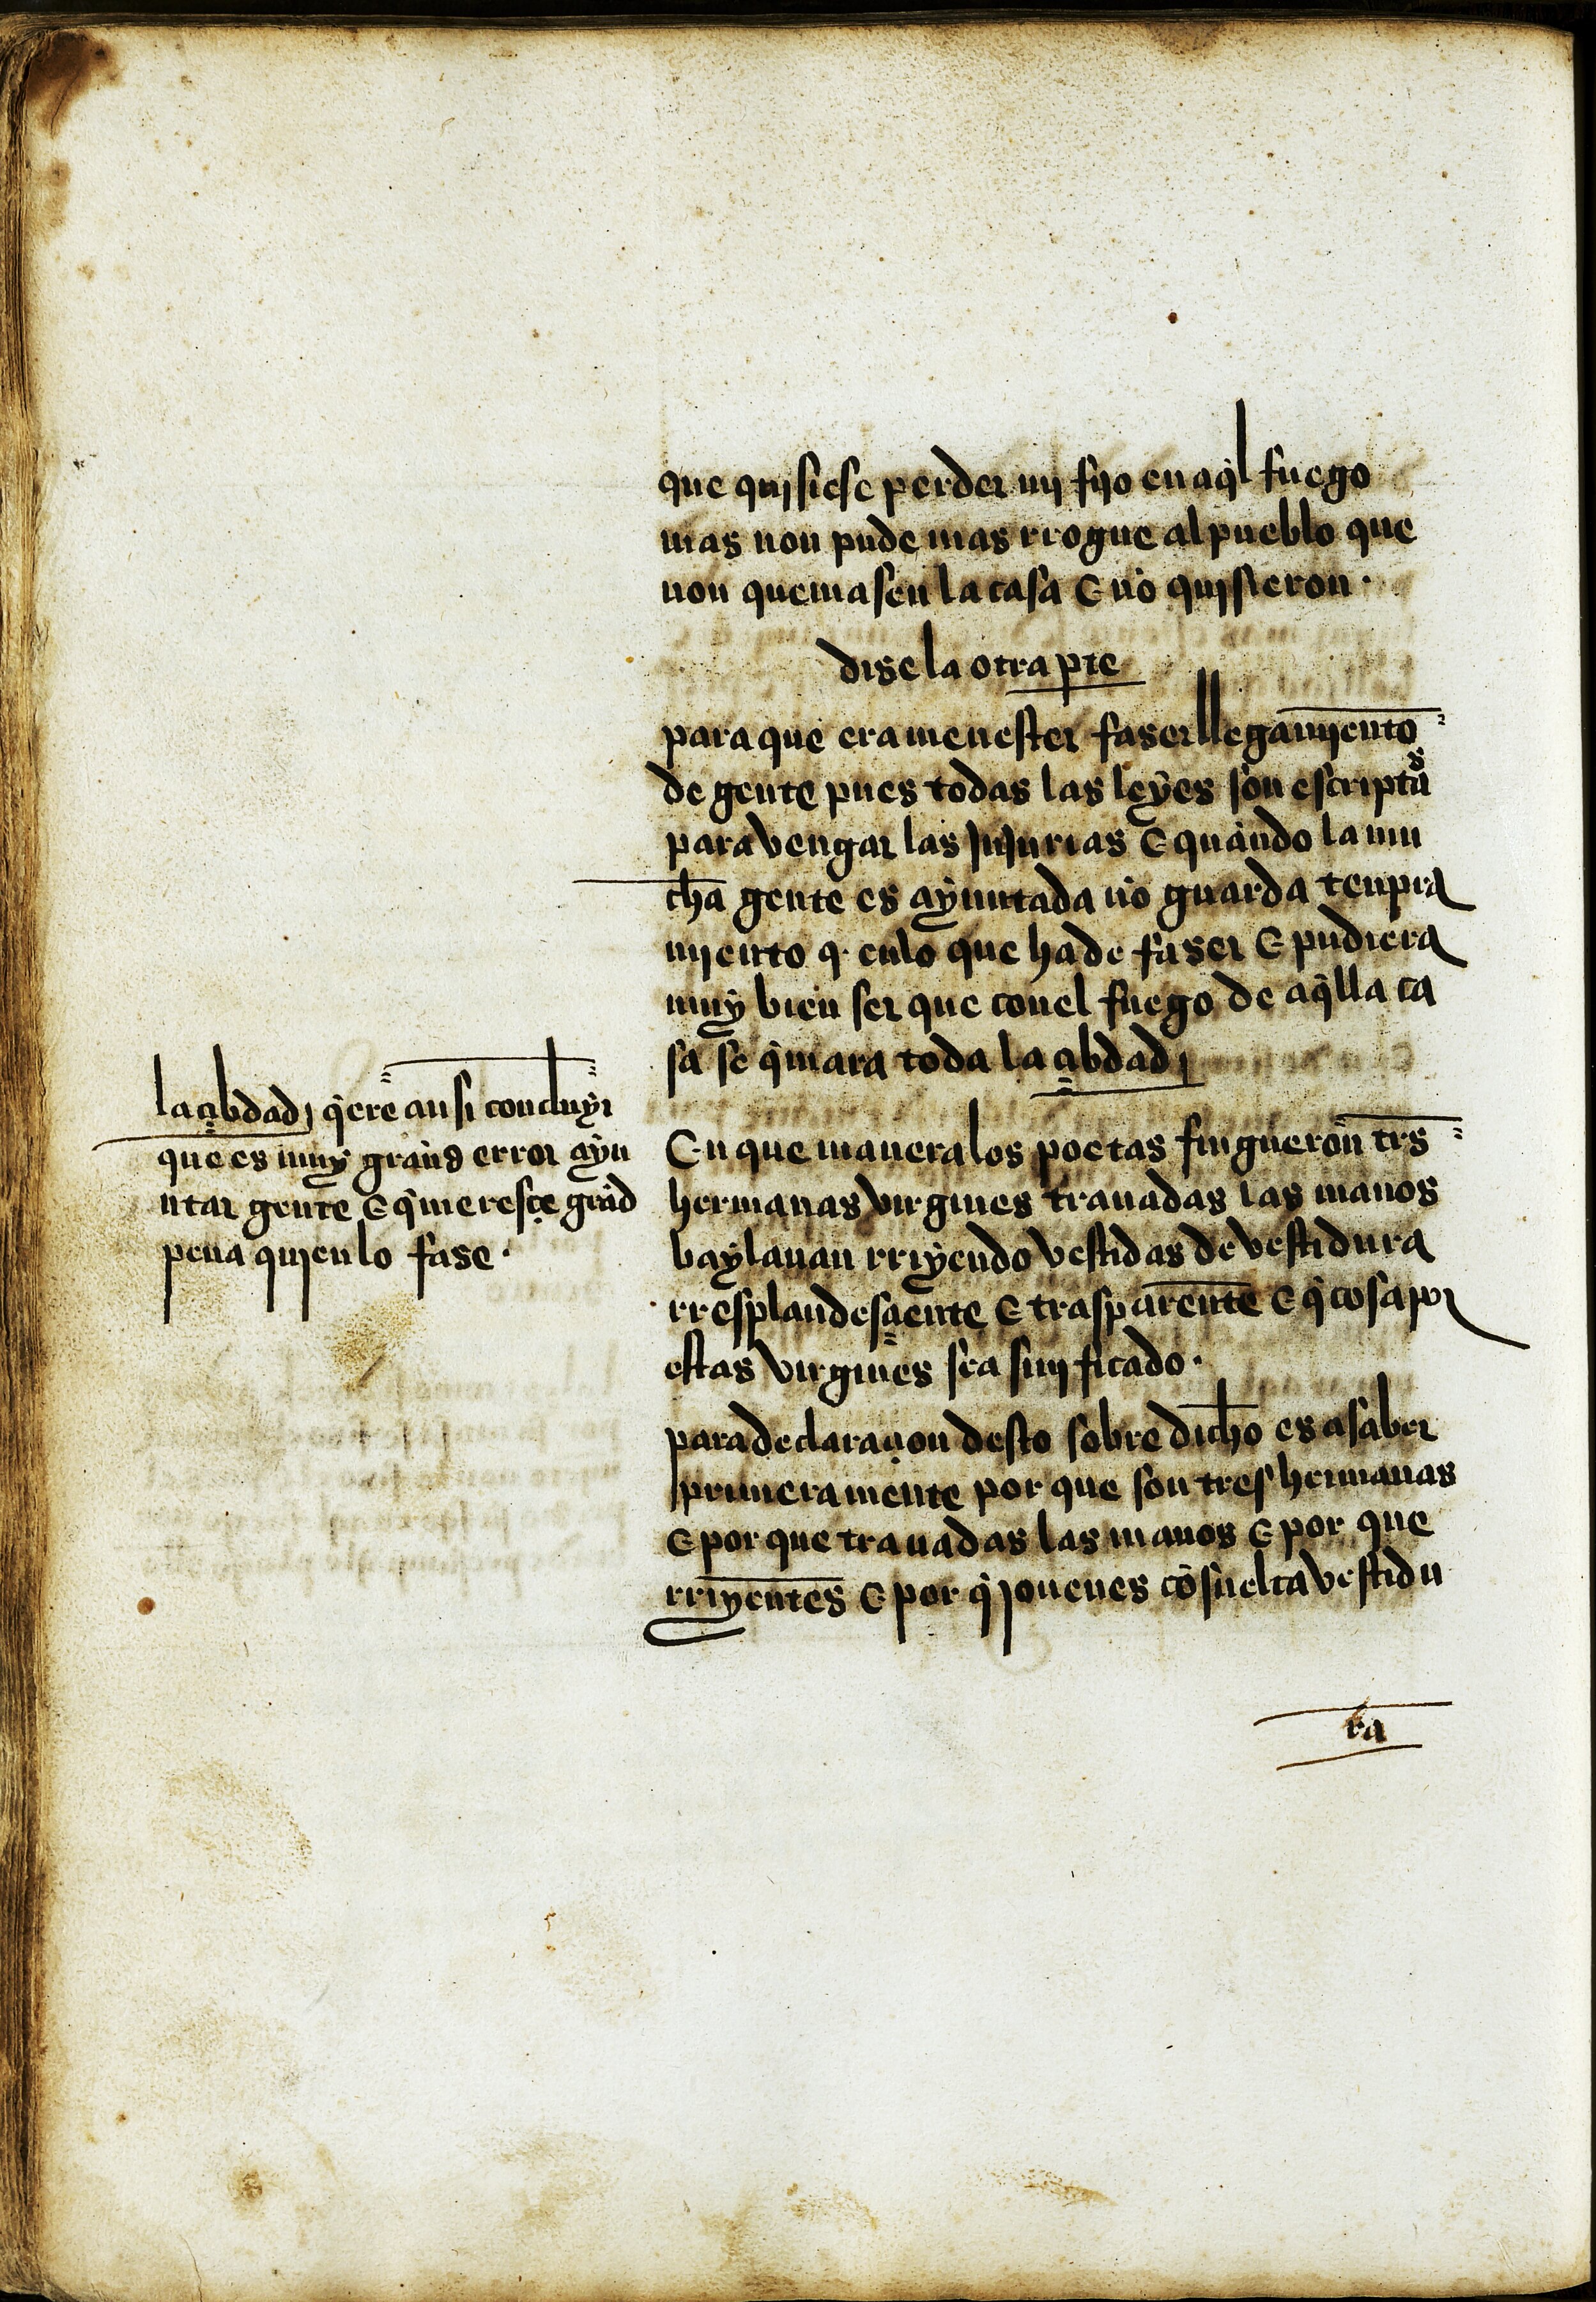 que quisiese perder mj fijo en aq̃l fuego
mas non pude mas rrogue al pueblo que
non quemasen la casa E nõ quisieron ·
dise la otra pte
para que era menester faser llegamjento
de gente pues todas las leyes son escriptas
para vengar las Injurias E quando la mu
cha gente es ayuntada nõ guarda tenpra
mjento q̃ enlo que ha de faser E pudiera
muy bien ser que conel fuego de aq̃lla ca
sa se q̃mara toda la çibdad
la çibdad q̃ere ansi concluyr
que es muy grand error ayu
ntar gente E q̃ meresçe grãd
pena quien lo fase ·
En que manera los poetas fingueron trs
hermanas virgines trauadas las manos
baylauan rriyendo vestidas de vestidura
rresplandesçiente E trasparente E q̃ cosa por
estas virgines sea sinificado ·
para declaraçion desto sobre dicho es a saber
primeramente por que son tres hermanas
E por que trauadas las manos E por que
rriyentes E por q̃ jouenes cõ suelta vestidu
ra